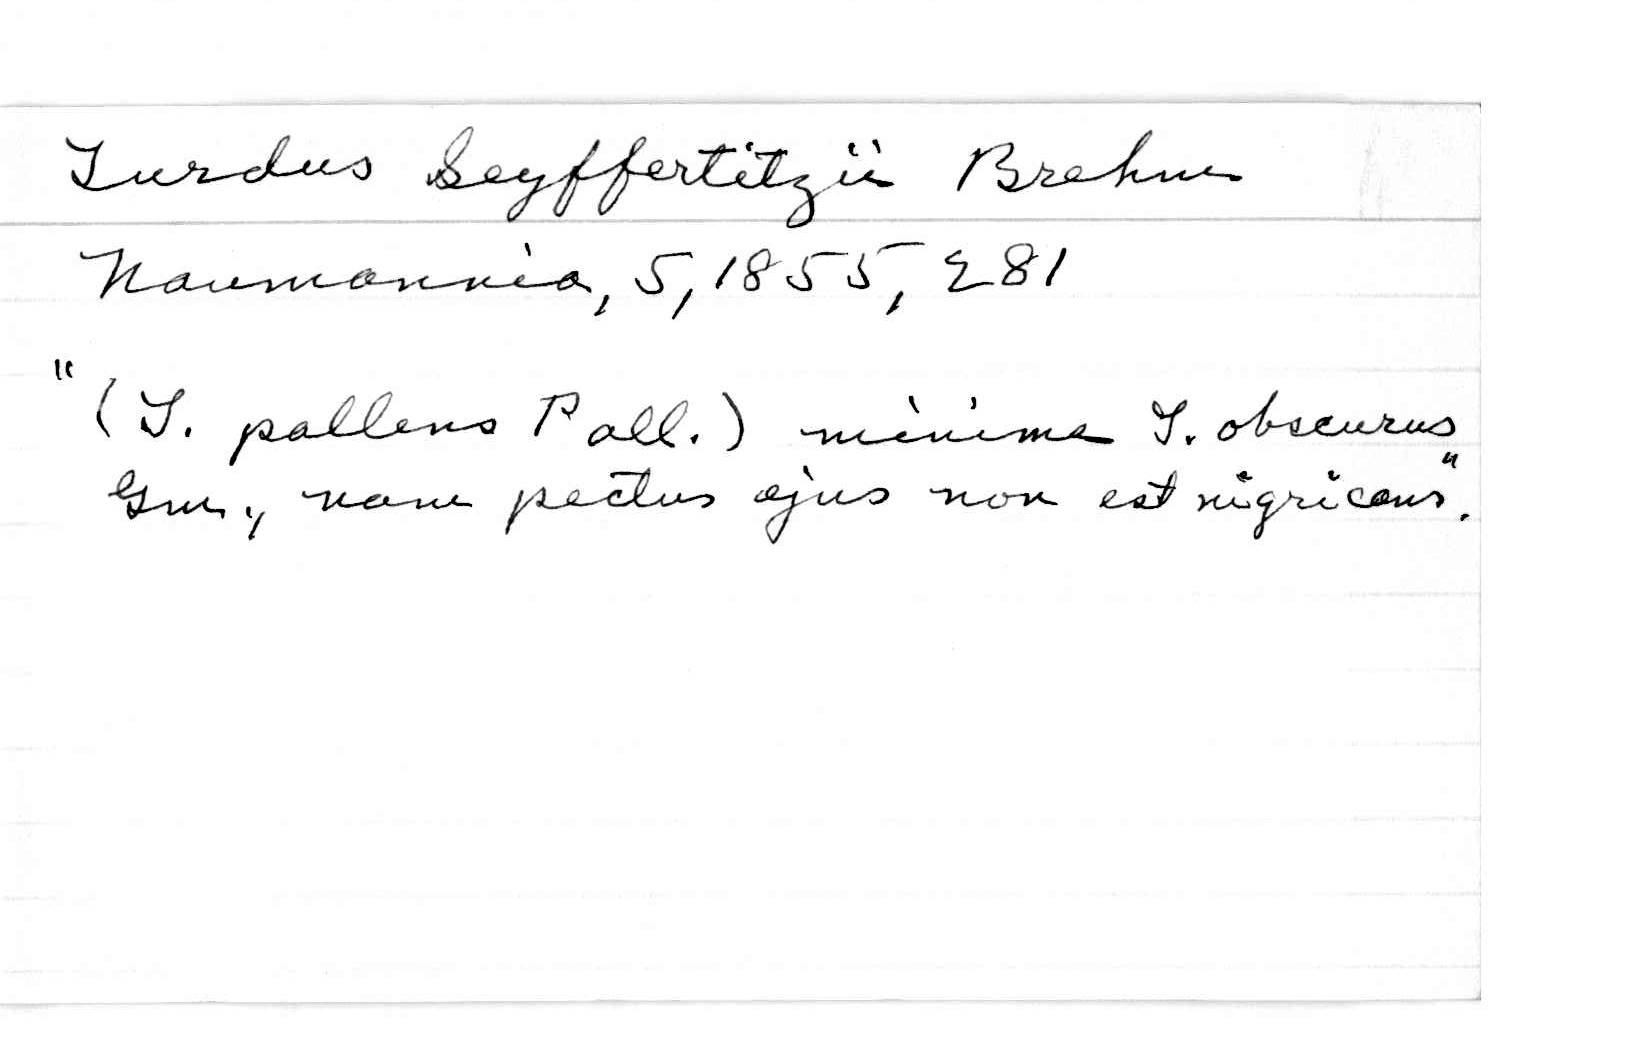 Turdus Seyffertitzii Brehm
Naumannia, 5, 1855, 281
"(T. pallens Pall.) minime T. obscurus
Gm., nam pectus ejus non est nigricans".